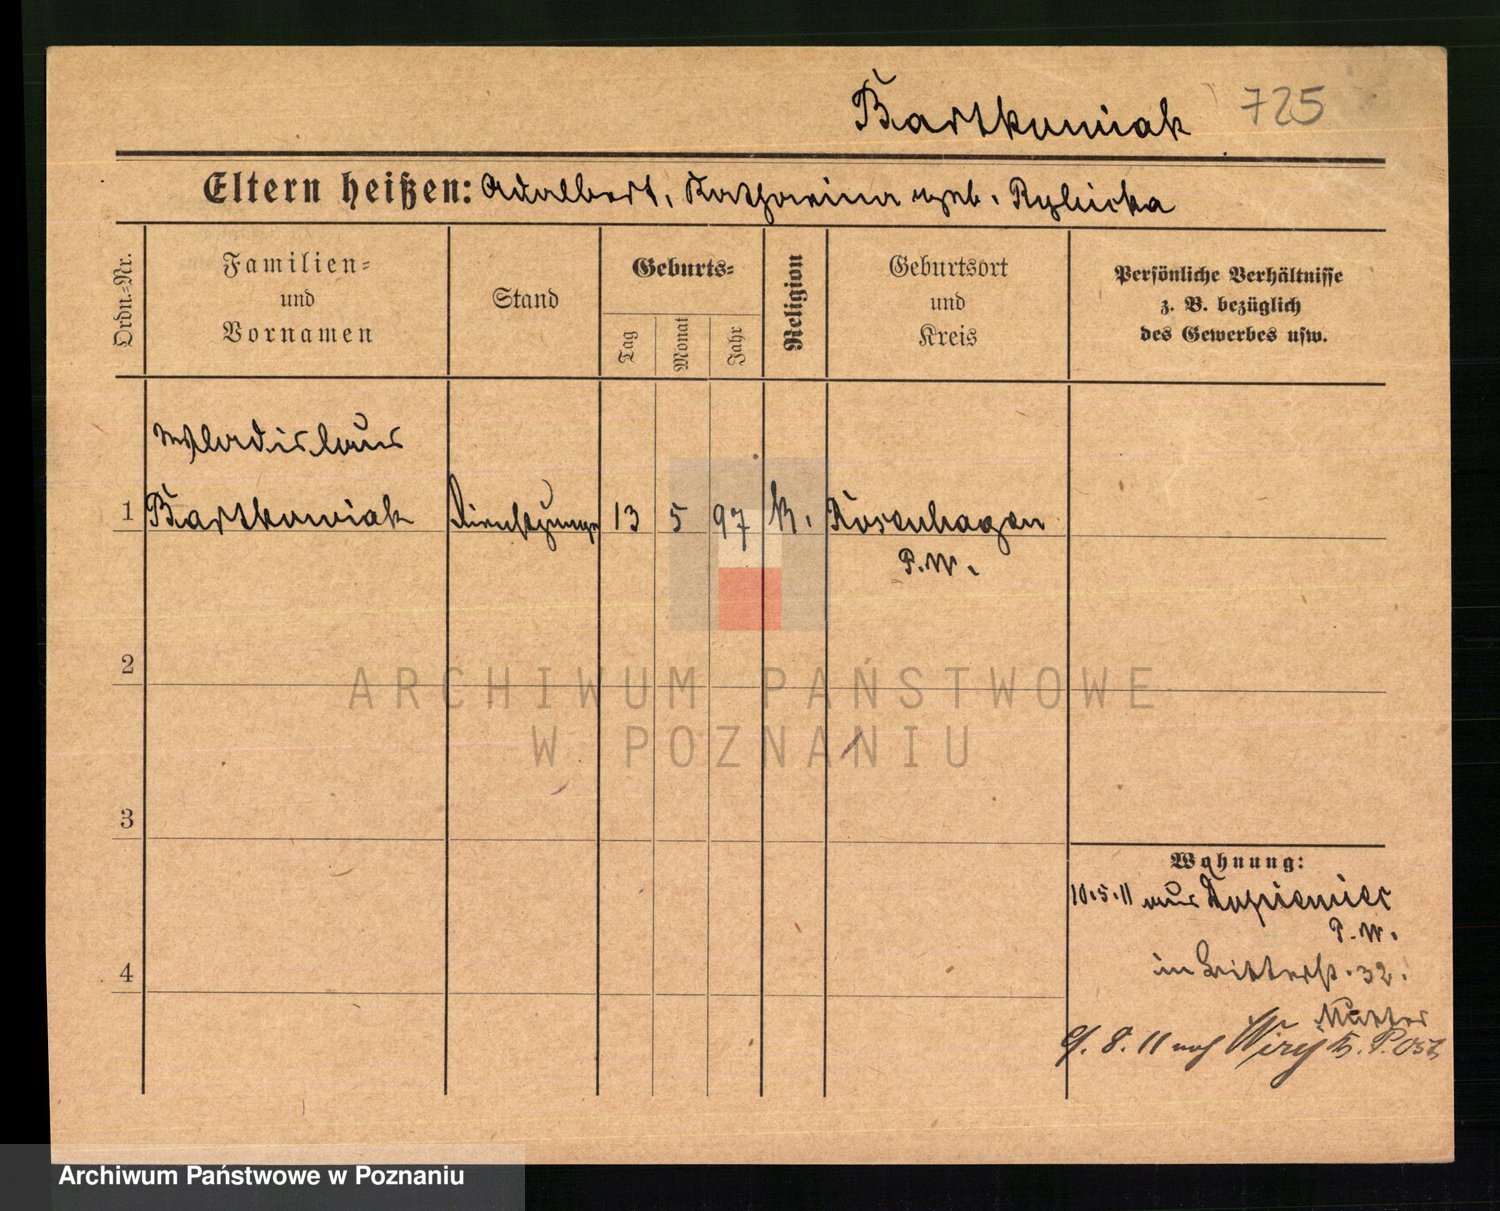 Bartkowiak 725
Eltern heißen: Adalbert, Katharina geb. Rybicka
Ordn.-Nr.
Familien-
und
Vornamen
Stand
Geburts-
Tag
Monat
Jahr
Religion
Geburtsort
und
Kreis
Persönliche Verhältnisse
z. B. bezüglich
des Gewerbes usw.
Wladislaus
1 Bartkowiak Dienstjunge 13 5 97 k. Rosenhagen
P.W.
2
ARCHIWUM PAŃSTWOWE
W POZNANIU
3
Wohnung:
10.5.11 aus
P.W.
4
32.
Mutter
9.8.11 nach Wiry K. P. Ost
Archiwum Państwowe w Poznaniu